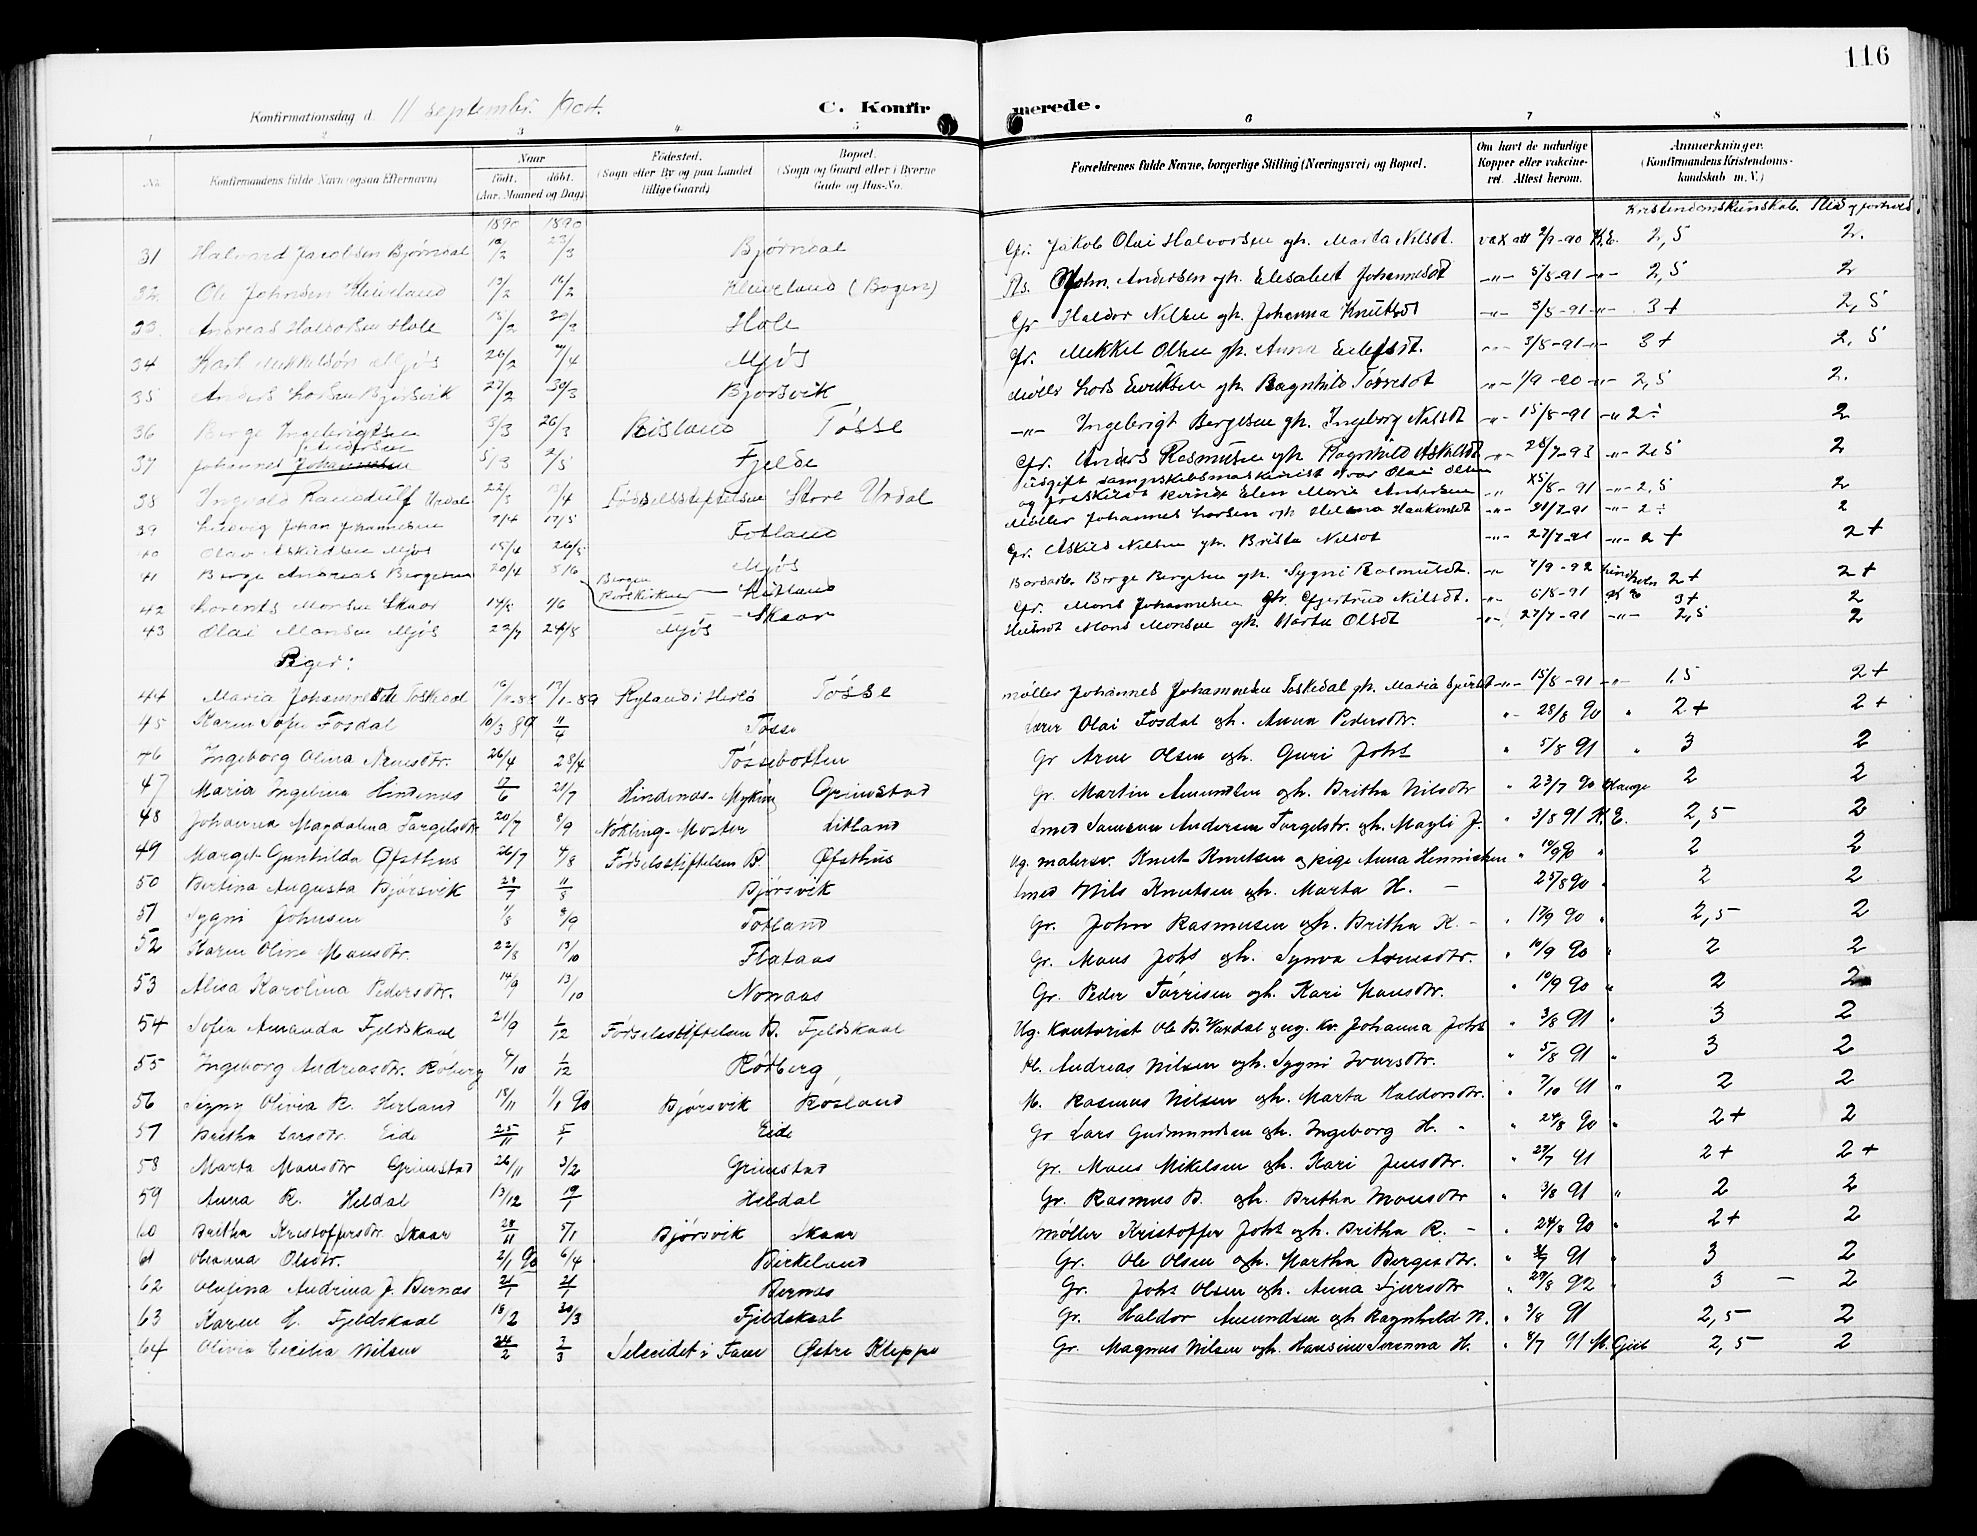 116
Konfirmationsdag d. 11 septembr. 1904.
C. Konfirmerede.
1 2 3 4 5 6 7 8
No. Konfirmandens fulde Navn (ogsaa Efternavn). Naar født. døbt. (Aar, Maaned og Dag) Fødested. (Sogn eller By og paa Landet tillige Gaard) Bopæl. (Sogn og Gaard eller i Byerne Gade og Hus-No. Forældrenes fulde Navne, borgerlige Stilling (Næringsvei) og Bopæl. Om havt de naturlige Kopper eller vakcineret. Attest herom. Anmærkninger. (Konfirmandens Kristendomskundskab m. V.)
1890 1890 Kristendomskunskab. Flid og forhold.
31 Halvard Jacobsen Bjørndal 23/3 Bjørndal Gr. Jakob Olai Halvorsen gh. Marta Nilsdt. vax att 2/9-90 K.E. 2,5 2.
32 Ole Johnsen Kleiveland 13/2 16/2 Kleiveland (Bogen) Ps. John. Andersen gh. Elisabet Johannesdt -"- 5/8-91 -"- 2,5 2
33 Andreas Haldorsen Hole 15/2 Hole Gr Haldor Nilsen gh. Johanna Knutsdt -"- 3/8-91 -"- 3+ 2,5
34 Karl Mikkelsøn Mjøs 26/2 7/4 Mjøs Gr. Mikkel Olsen gh. Anna Eilefsdt. -"- 3/8-91 -"- 3+ 2,5
35 Anders Larsen Bjørsvik 27/2 30/3 Bjørsvik Møller Lars Eriksen gh. Ragnhild Tørresdt -"- 1/9-90 -"- 2,5 2.
36 Berge Ingebrigtsen 3/3 26/3 Risland Tøsse -"- Ingebrigt Bergesen gh. Ingeborg Nilsdt -"- 15/8-91 -"- 2÷ 2
37 Johannes Andersen 5/3 2/5 Fjelde Gr. Anders Rasmusen gh. Ragnhild Askeldt -"- 28/7-93 -"- 2,5 2
38 Ingvald Randulf Urdal 22/3 13/4 Fødselsstiftelsen Store Urdal Ugift dampskibsmaskinist Ivar Olai Olsen og fraskildt kvinde Elen Marie Andersen -"- 5/8-91 -"- 2,5 2
39 Ludvig Johan Johannesen 7/4 17/5 Totland Møller Johannes Larsen gh. Helena Haakonsdt -"- 31/7-91 -"- 2÷ 2
40 Olav Askildsen Mjøs 15/4 26/5 Mjøs Gr. Askild Nilsen gh. Brita Nilsdt -"- 27/7-91 -"- 2+ 2+
41 Berge Andreas Bergesen 20/4 8/6 Bergen Korskirken Hetland Berge Bergesen gh. Sygni Rasmusdt. -"- 7/9-92 2+ 2+
42 Lorents Monsen Skaar 14/5 1/6 Skaar Gr. Mons Johannesen gh. Gjertrud Nilsdt. -"- 6/8-91 3+ 2
43 Olai Monsen Mjøs 23/7 24/8 Mjøs Mons Monsen gh. Marta Olsdt -"- 27/7-91 -"- 2,5 2
Piger:
44 Maria Johannesdt Toskedal 17/1-89 Ryland i Herlø Tøsse Møller Johannes Johannesen Toskedal gh. Maria -"- 15/8-91 -"- 1.5 2+
45 Karen Sofie Fosdal 10/3 89 11/4 Tøsse Lærer Olai Fosdal gh. Anna Pedersdtr. " 28/8 90 " 2+ 2+
46 Ingeborg Olina Arnesdtr. 26/4 28/4 Tøssebotten Gr Arne Olsen gh. Guri Johs " 5/8 91 " 3 2
47 Maria Ingelina Hindenes 17/6 21/7 Hindenæs-Myking Grimstad Gr. Martin Amundsen gh. Britha Nilsdtr " 23/7 90 Hauge 2 2
48 Johanna Magdalina Torgilsdtr. 20/7 8/9 Nøkling-Moster Litland Smed Samson Andersen Torgelstr. gh. Magli J. " 3/8 91 K.E. 2,5 2
49 Marget Gunhilda Øfsthus 26/7 4/8 Fødselsstiftelsen B. Øfsthus Ug. malersv. Knut Knutsen og pige Anna Henriksen " 10/9 90 " 2 2
50 Bertina Augusta Bjørsvik 28/7 11/8 Bjørsvik Smed Nils Knutsen gh. Marta H. - 25/8 90 " 2 2
51 Sygni Johnsen 1/8 8/9 Totland Gr. John Rasmusen gh. Britha K. - " 17/9 90 " 2,5 2
52 Karen Olina Monsdtr. 22/8 13/10 Flataas Gr. Mons Johs gh. Synva Arnesdtr. " 10/9 90 " 2 2
53 Alisa Karolina Pedersdtr. 14/9 13/10 Nonaas Gr. Peder Tørrisen gh. Kari Monsdtr. " 10/9 90 " 2 2
54 Sofia Amanda Fjeldskaal 21/9 1/12 Fødselsstiftelsen B. Fjeldskaal Ug. Kontorist Ole B. og ug. kv. Johanna Johs " 3/8 91 " 3 2
55 Ingeborg Andreasdtr. Røberg 4/10 1/12 Rødberg Andreas Nilsen gh. Sygni Ivarsdtr. " 5/8 91 " 3 2
56 Signy Olivia R. Herland 18/11 1/1 90 Bjørsvik Røsland M. Rasmus Nilsen gh. Marta Haldorsdtr. " 7/10 91 " 2 2
57 Britha Larsdtr. Eide 25/11 5/1 Eide Gr Lars Gudmundsen gh. Ingeborg H. - " 24/8 90 " 2+ 2
58 Marta Monsdtr Grimstad 26/11 3/2 Grimstad Gr. Mons Mikelsen gh. Kari Jensdtr. " 29/7 91 2+ 2+
59 Anna R. Heldal 13/12 19/1 Heldal Gr. Rasmus B. gh. Britha Monsdtr " 3/8 91 " 2 2
60 Britha Kristoffersdtr. Skaar 28/11 5/1 Bjørsvik Skaar Møller Kristoffer Johs gh. Britha R. - " 24/8 90 " 2+ 2
61 Oleanna Olsdtr. 2/1 90 6/4 Birkeland Gr. Ole Olsen gh. Martha Bergesdtr. " 91 " 3 2
62 Olufina Andrina J. Bernæs 21/1 21/1 Bernæs Gr. Johs Olsen gh. Anna Sjursdtr " 29/8 92 " 3 - 2
63 Karen H. Fjeldskaal 18/2 30/3 Fjeldskaal Gr. Haldor Amundsen gh Ragnhild N. " 3/8 91 " 2,5 2
64 Olivia Cecilia Nilsen 24/2 2/3 Seleeidet i Fane Østre Kleppe Gr. Magnus Nilsen gh. Hansine Serenna H. " 8/7 91 M. Gjeit 2,5 2